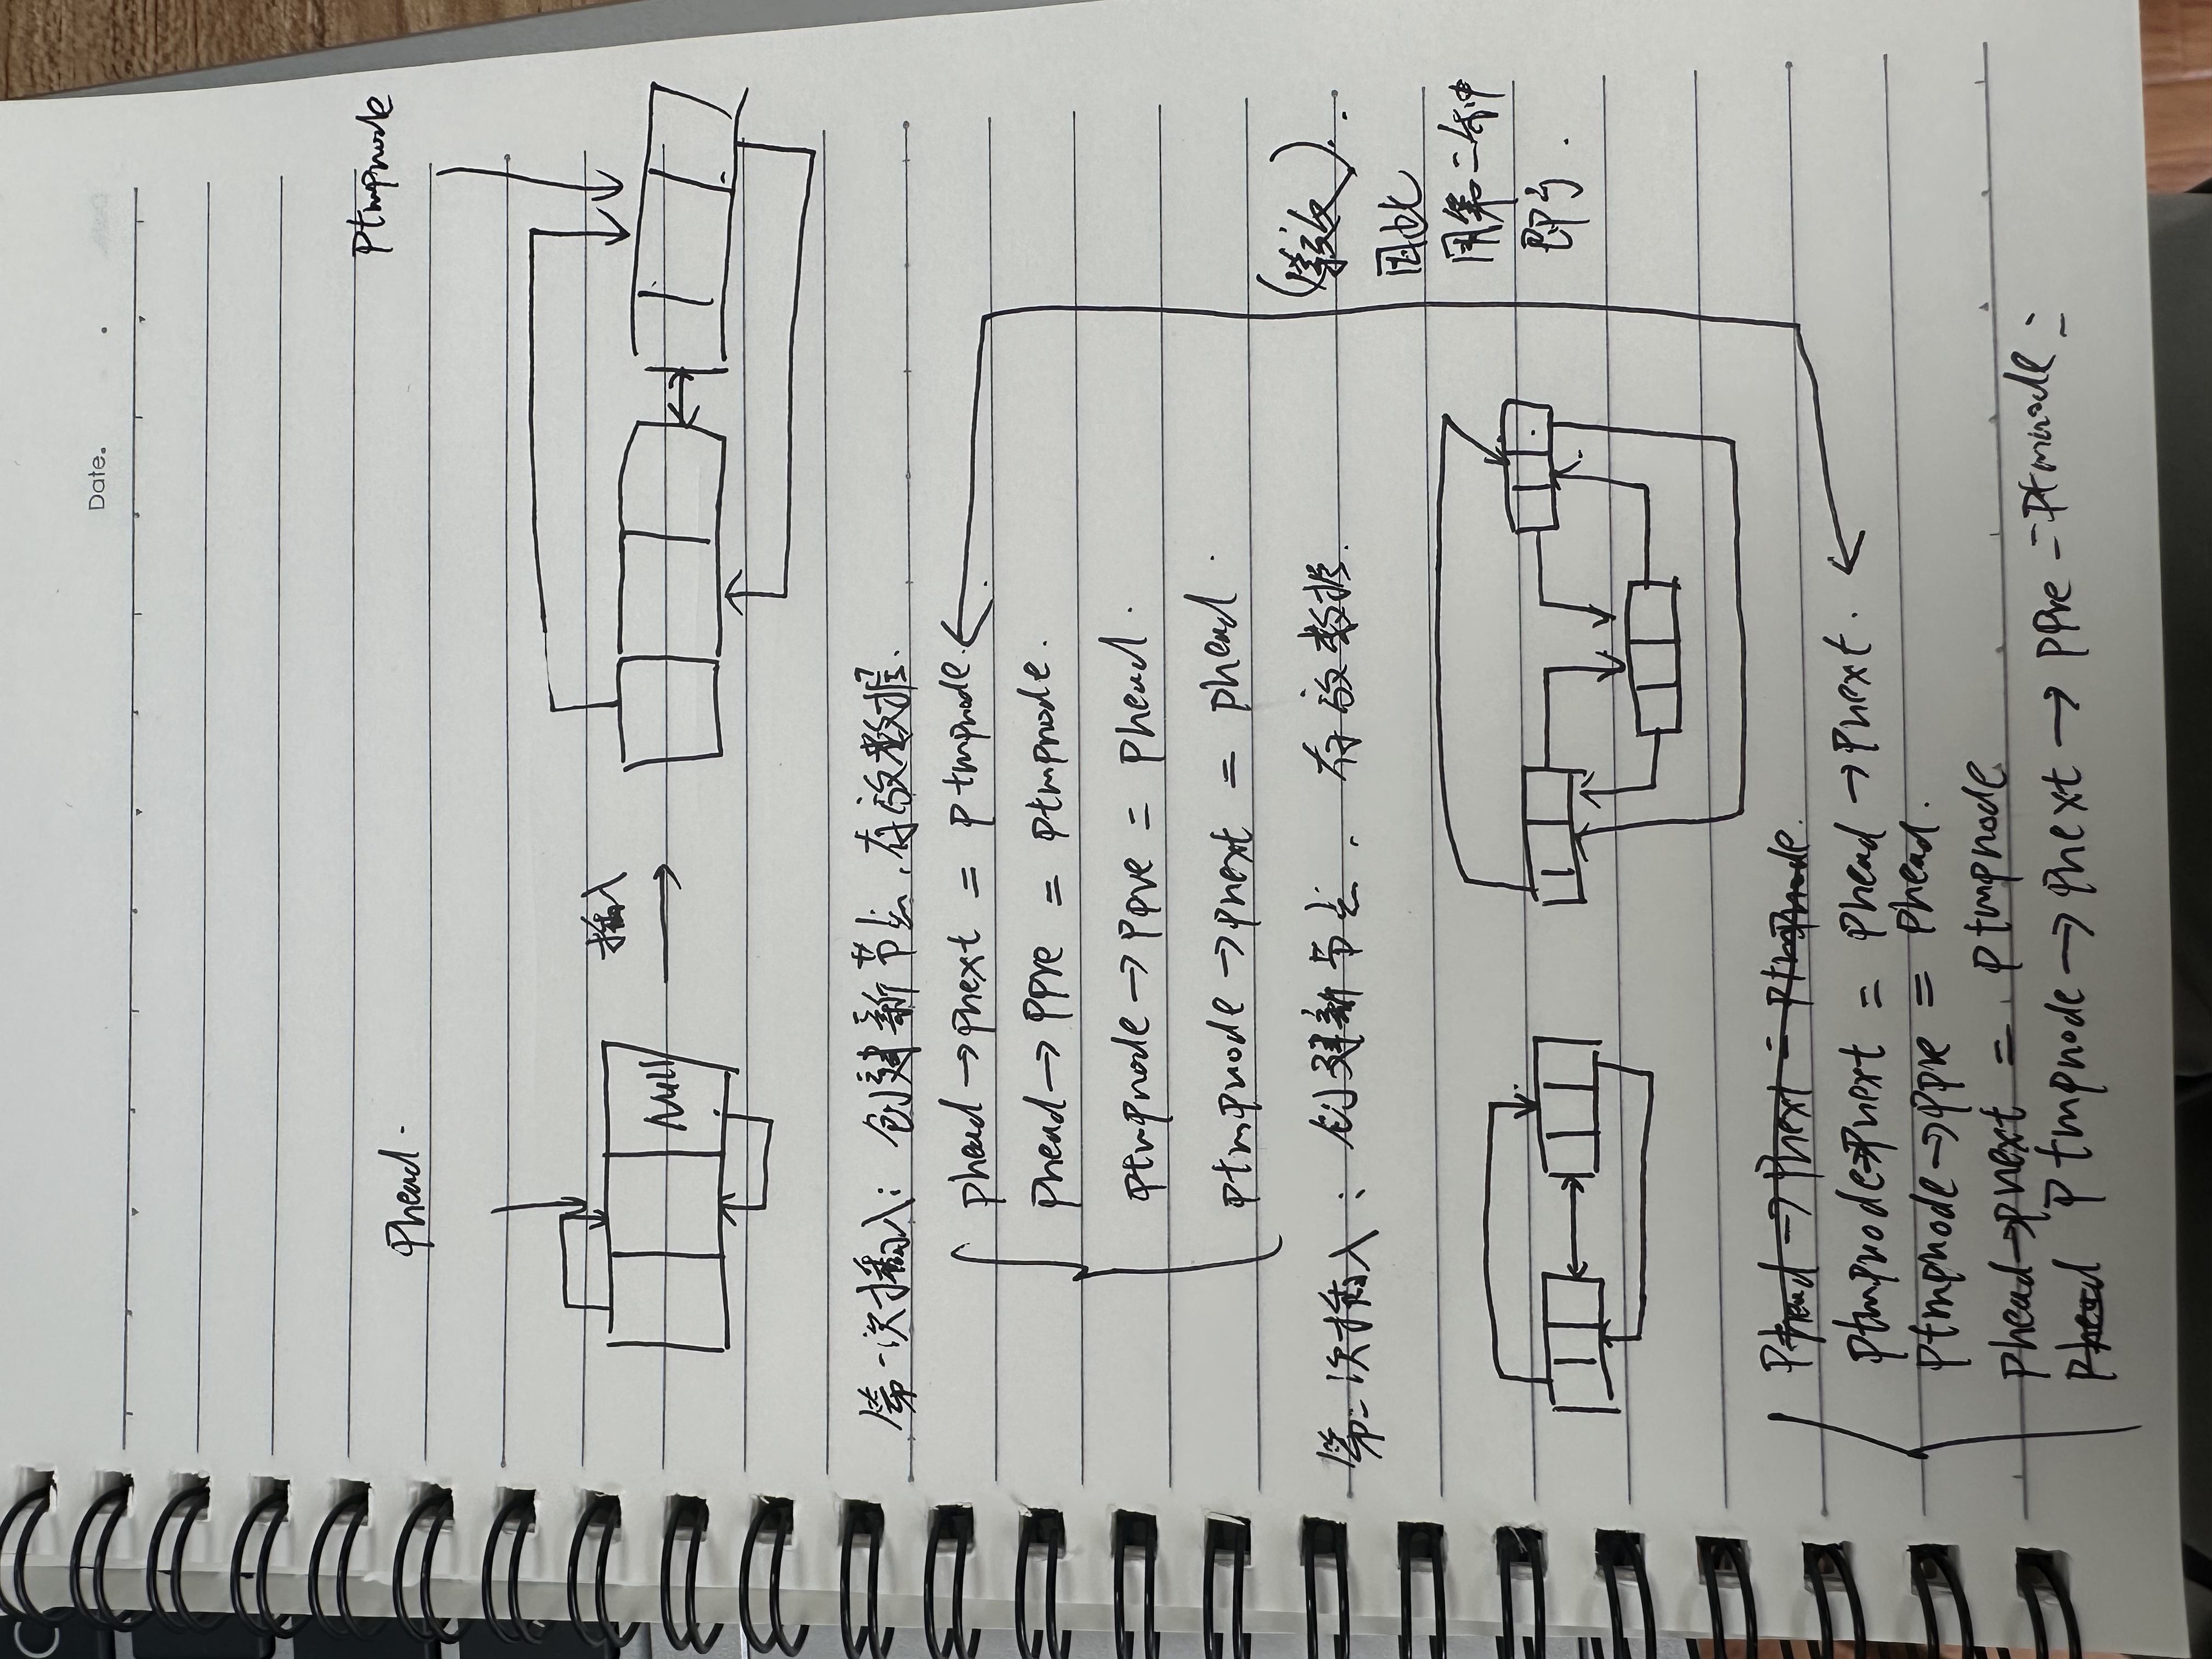 Date.
Phead.
Ptmpnode
Null
插入
第一次插入: 创建新节点, 存放数据.
Phead→Pnext = Ptmpnode.
Phead→Ppre = Ptmpnode.
Ptmpnode→Ppre = Phead.
Ptmpnode→Pnext = Phead.
(等效).
因此
用第二种
即可.
第二次插入: 创建新节点. 存放数据.
Phead→Pnext = Ptmpnode.
Ptmpnode→Pnext = Phead→Pnext.
Ptmpnode→Ppre = Phead.
Phead→Pnext = Ptmpnode
Phead Ptmpnode→Pnext→Ppre = Ptmpnode